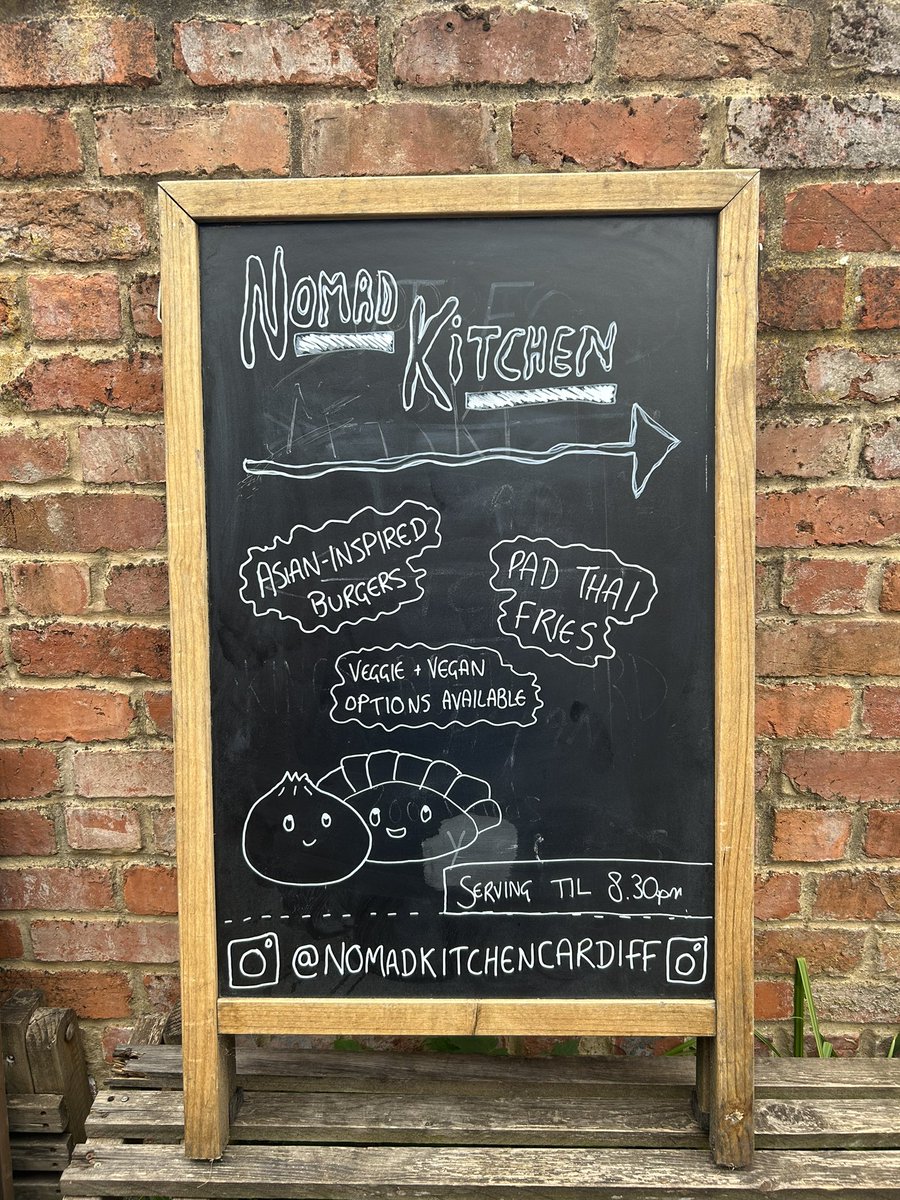 NOMAD
KITCHEN
ASIAN-INSPIRED
BURGERS
PAD THAI
FRIES
VEGGIE + VEGAN
OPTIONS AVAILABLE
SERVING TIL 8.30pm
@NOMADKITCHENCARDIFF